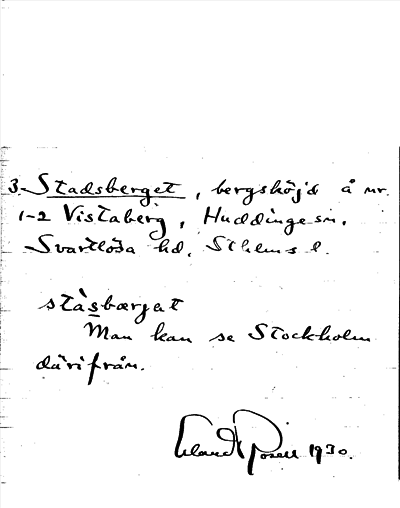 3. Stadsberget, bergshöjd å nr.
1-2 Vistaberg, Huddinge sn.
Svartlösa hd. Sthlms l.
stàsbærjat
Man kan se Stockholm
därifrån.
Erland Rosell 1930.